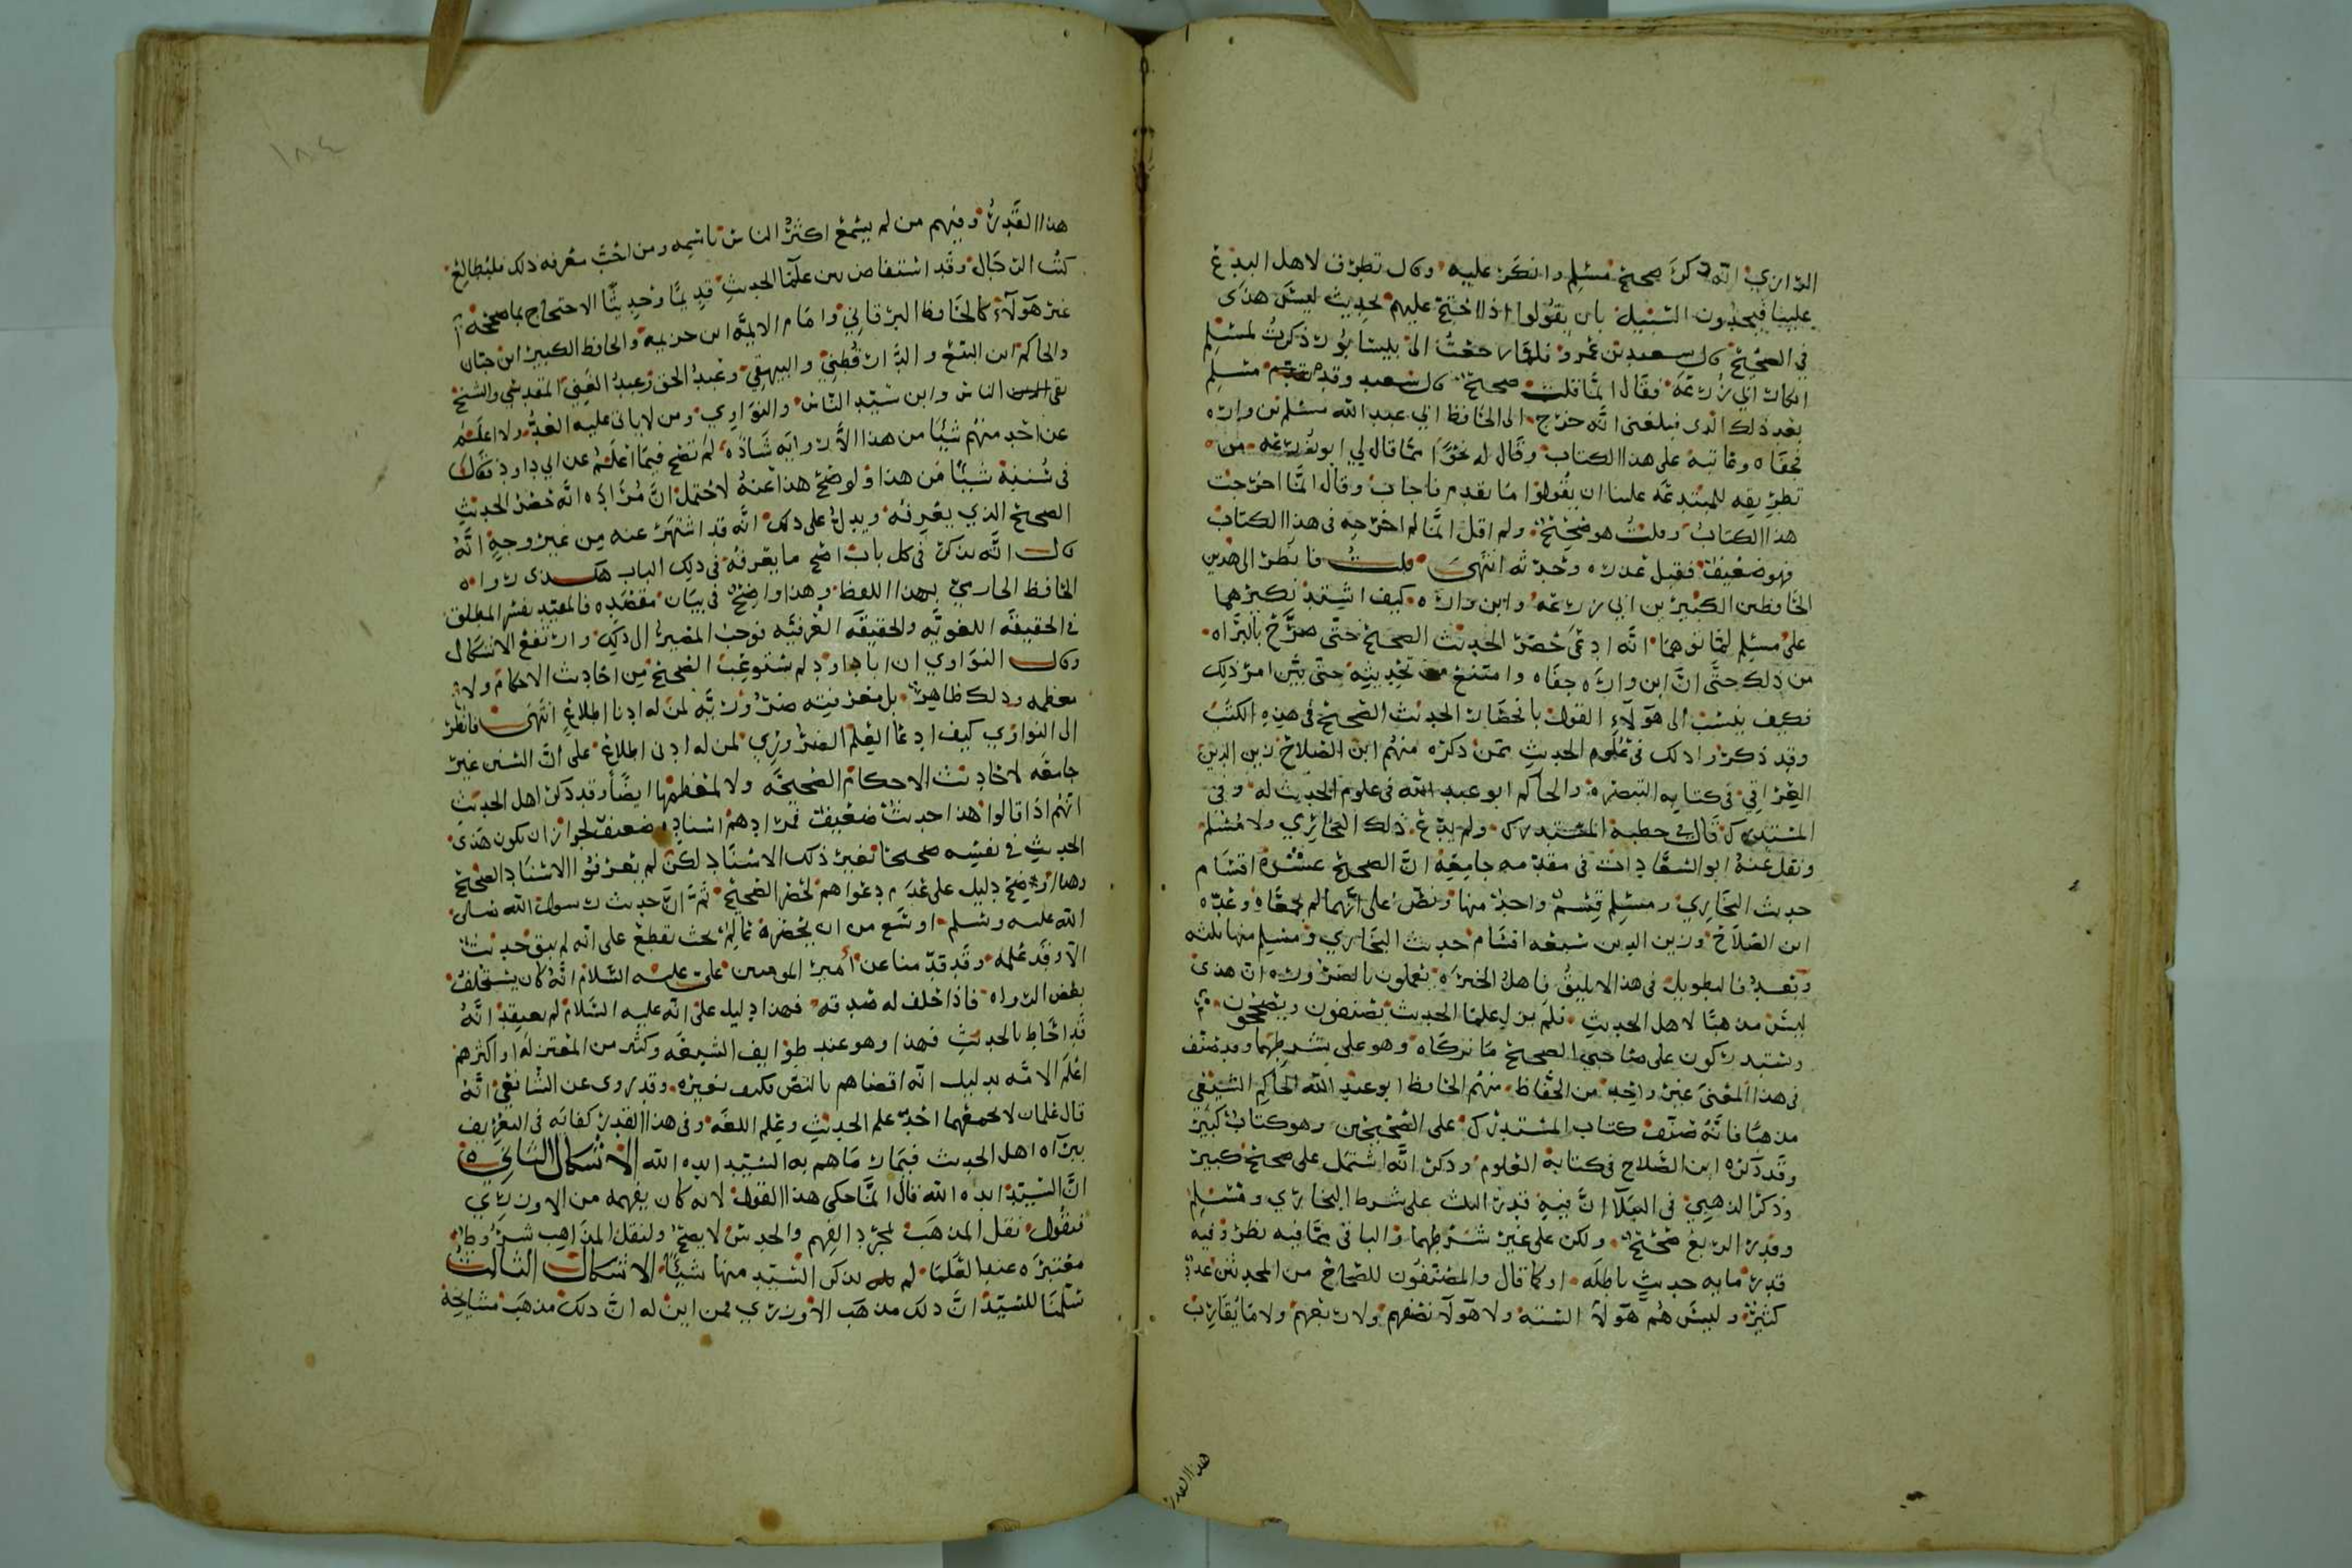 الرازي انه ذكر صحيح مسلم وانكر عليه وقال تطرف لاهل البدع
علينا فيجدون السبيل بان يقولوا اذا احتج عليهم بحديث ليس هذى
في الصحيح قال سعيد بن عمرو فلما رجعت الى نيسابور ذكرت لمسلم
انكار ابي زرعه فقال انما قلت صحيح قال سعيد وقدم مسلم
بعد ذلك الري فبلغنى انه خرج الى الحافظ ابي عبد الله مسلم بن واره
فجفاه وعاتبه على هذا الكتاب وقال له نحوا مما قال لي ابو زرعه من
تطريقه للمبتدعه علينا ان يقولوا ما تقدم فاجاب وقال انما اخرجت
هذا الكتاب وقلت هو صحيح ولم اقل انما لم اخرجه في هذا الكتاب
فهو ضعيف فقبل عذره وحدثه انتهى قلت فانظر الى هذين
الحافظين الكبيرين ابي زرعه وابن واره كيف اشتد نكيرهما
على مسلم لما توهما انه ادعى حصر الحديث الصحيح حتى صرح بالبراه
من ذلك حتى ان ابن واره جفاه وامتنع من تحديثه حتى بين امر ذلك
فكيف ينسب الى هولاء القول بانحصار الحديث الصحيح في هذه الكتب
وقد ذكروا ذلك في علوم الحديث ممن ذكره منهم ابن الصلاح زين الدين
العراقي في كتابه التبصره والحاكم ابو عبد الله في علوم الحديث له وفى
المستدرك قال في خطبة المستدرك ولم يدع ذلك البخاري ولا مسلم
ونقل عنه ابو السعادات في مقدمه جامعه ان الصحيح عشرة اقسام
حديث البخاري ومسلم قسم واحد منها ونص على انهما لم يجمعاه وعده
ابن الصلاح وزين الدين سبعه اقسام حديث البخاري ومسلم منها ثلثه
وبعد فالتطويل في هذا لا يليق فاهل الخبره يعلمون بالضروره ان هذى
ليس مذهبا لاهل الحديث فلم يزل علما الحديث يصنفون ويصححون
ويستدركون على صاحبى الصحيح ما تركاه وهو على شرطهما وقد صنف
في هذا المعنى غير واحد من الحفاظ منهم الحافظ ابو عبد الله الحاكم الشيعى
مذهبا فانه صنف كتاب المستدرك على الصحيحين وهو كتاب كبير
وقد ذكره ابن الصلاح في كتابه العلوم وذكر انه اشتمل على صحيح كبير
وذكر الذهبي في النبلا ان فيه قدر الثلث على شرط البخاري ومسلم
وقدر الربع صحيح ولكن على غير شرطهما والباقى مما فيه نظر وفيه
قدر مايه حديث باطله او كما قال والمصنفون للصحاح من المحدثين عدد
كثير وليس هم هولا السته ولا هولا نصفهم ولا ربعهم ولا ما يقارب
هذا القدر
١٨٤
هذا القدر وفيهم من لم يسمع اكثر الناس باسمه ومن احب معرفه ذلك فليطالع
كتب الرجال وقد استفاض بين علما الحديث قديما وحديثا الاحتجاج بما صححه
غير هولآء كالحافظ البرقاني وامام الايمه ابن خزيمه والحافظ الكبير ابن حبان
والحاكم ابن البيع والدارقطني والبيهقي وعبد الحق وعبد الغنى المقدسي والشيخ
تقى الناس وابن سيد الناس والنواوي ومن لا ياتى عليه العد ولا اعلم
عن احد منهم شيا من هذا الا روايه شاذه لم تصح فيما اعلم عن ابي داود فقال
في سننه شيا من هذا ولو صح هذا عنه لاحتمل ان مراده انه حصر الحديث
الصحيح الذي يعرفه ويدل على ذلك انه قد اشتهر عنه من غير وجه انه
قال انه يذكر في كل باب اصح ما يعرفه في ذلك الباب هكذى رواه
الحافظ الحازمي بهذا اللفظ وهذا واضح في بيان مقصده فالمقيد يفسر المطلق
في الحقيقه اللغويه والحقيقه العرفيه فوجب المصير الى ذلك وارتفع الاشكال
وقال النواوي ان ابا داود لم يستوعب الصحيح من احاديث الاحكام ولا
معظمه وذلك ظاهر بل معرفته ضروريه لمن له ادنا اطلاع انتهى فانظر
الى النواوي كيف ادعا العلم الضروري لمن له ادنى اطلاع على ان السنن غير
جامعه لاحاديث الاحكام الصحيحه ولا لمعظمها ايضا وقد ذكر اهل الحديث
انهم اذا قالوا هذا حديث ضعيف فمرادهم اسناده ضعيف لجواز ان يكون هذى
الحديث في نفسه صحيحا بغير ذلك الاسناد لكن لم يعرفوا الاسناد الصحيح
وهذا اوضح دليل على عدم دعواهم لحصر الصحيح ثم ان حديث رسول الله صلى
الله عليه وسلم اوسع من ان يحضره عالم بحث يقطع على انه لم يبق حديث
الا وقد علمه وقد قدمنا عن امير المومنين على عليه السلام انه كان يستحلف
بعض الرواه فاذا حلف له صدقه فهذا دليل على انه عليه السلام لم يعتقد انه
قد احاط بالحديث فهذا وهو عند طوايف الشيعه وكثير من المعتزله او اكثرهم
اعلم الامه بدليل انه اقضاهم بالنص فكيف بغيره وقد روى عن الشافعي انه
قال علمان لا يجمعهما احد علم الحديث وعلم اللغه وفى هذا القدر كفايه في التعريف
ببراه اهل الحديث فيما رماهم به السيد ايده الله الاشكال الثاني
ان السيد ايده الله قال انما حكى هذا القول لانه كان يفهمه من الاوزري
فنقول نقل المذهب لمجرد الفهم والحدس لا يصح ولنقل المذاهب شروط
معتبره عند العلما لم يذكر السيد منها شيا الاشكال الثالث
سلمنا للسيد ان ذلك مذهب الاوزري فمن اين له ان ذلك مذهب مشايخه